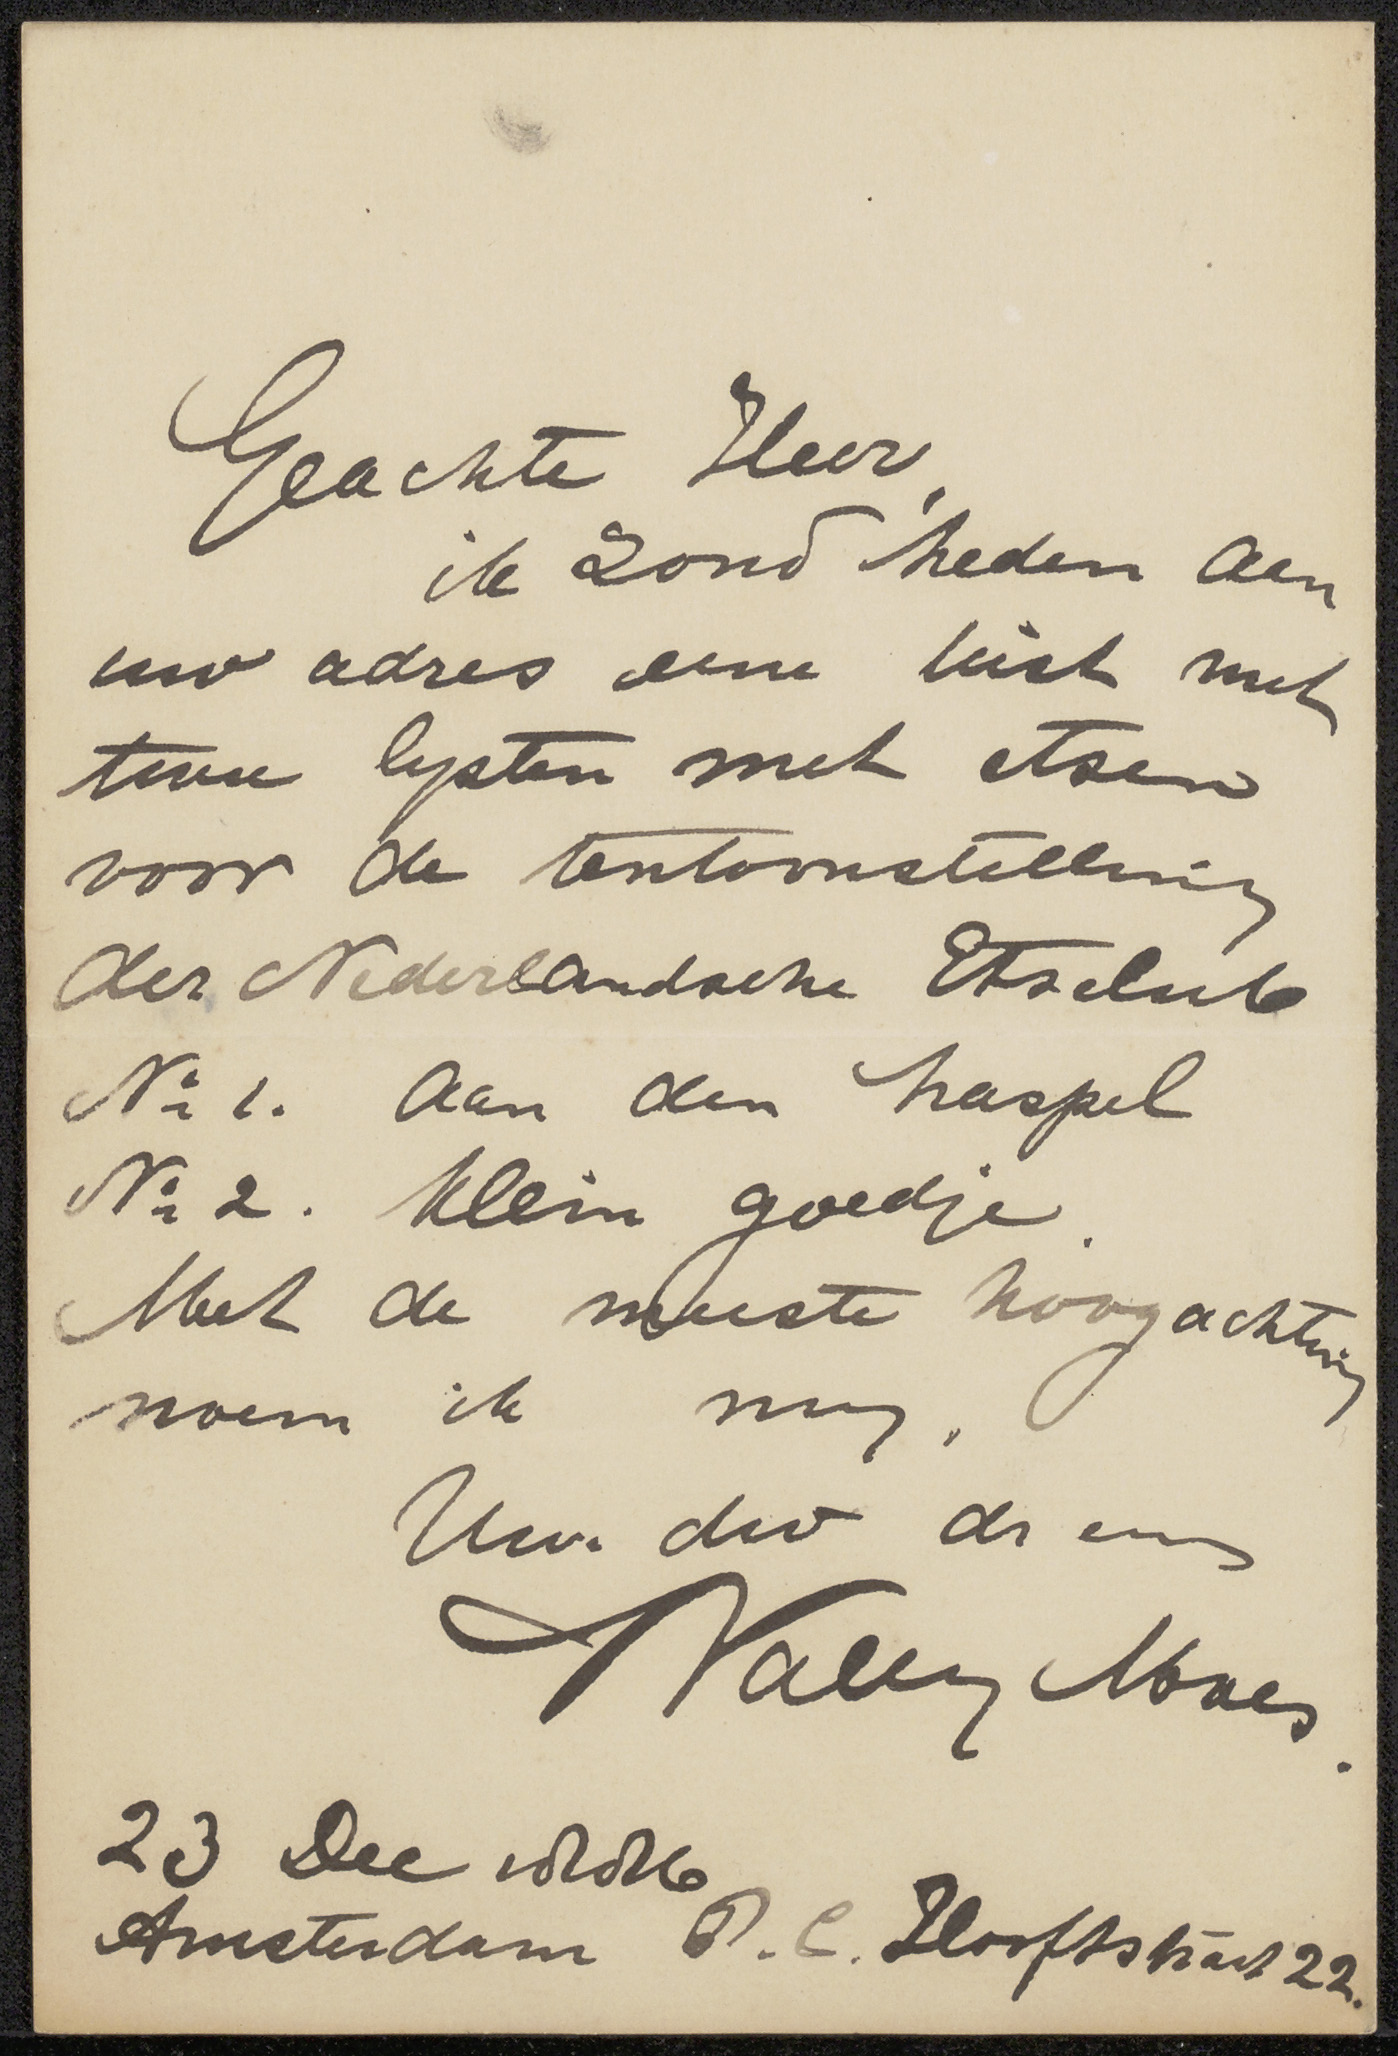 Geachte Heer,
ik zond heden aan
uw adres eene kist met
twee lysten met etsen
voor de tentoonstelling
der Nederlandsche Etsclub
No 1. Aan den haspel
No 2. Klein goedje.
Met de meeste hoogachting
noem ik my,
Uw. dw dr ens
Wally Moes.
23 Dec 1886
Amsterdam P. C. Hooftstraat 22.